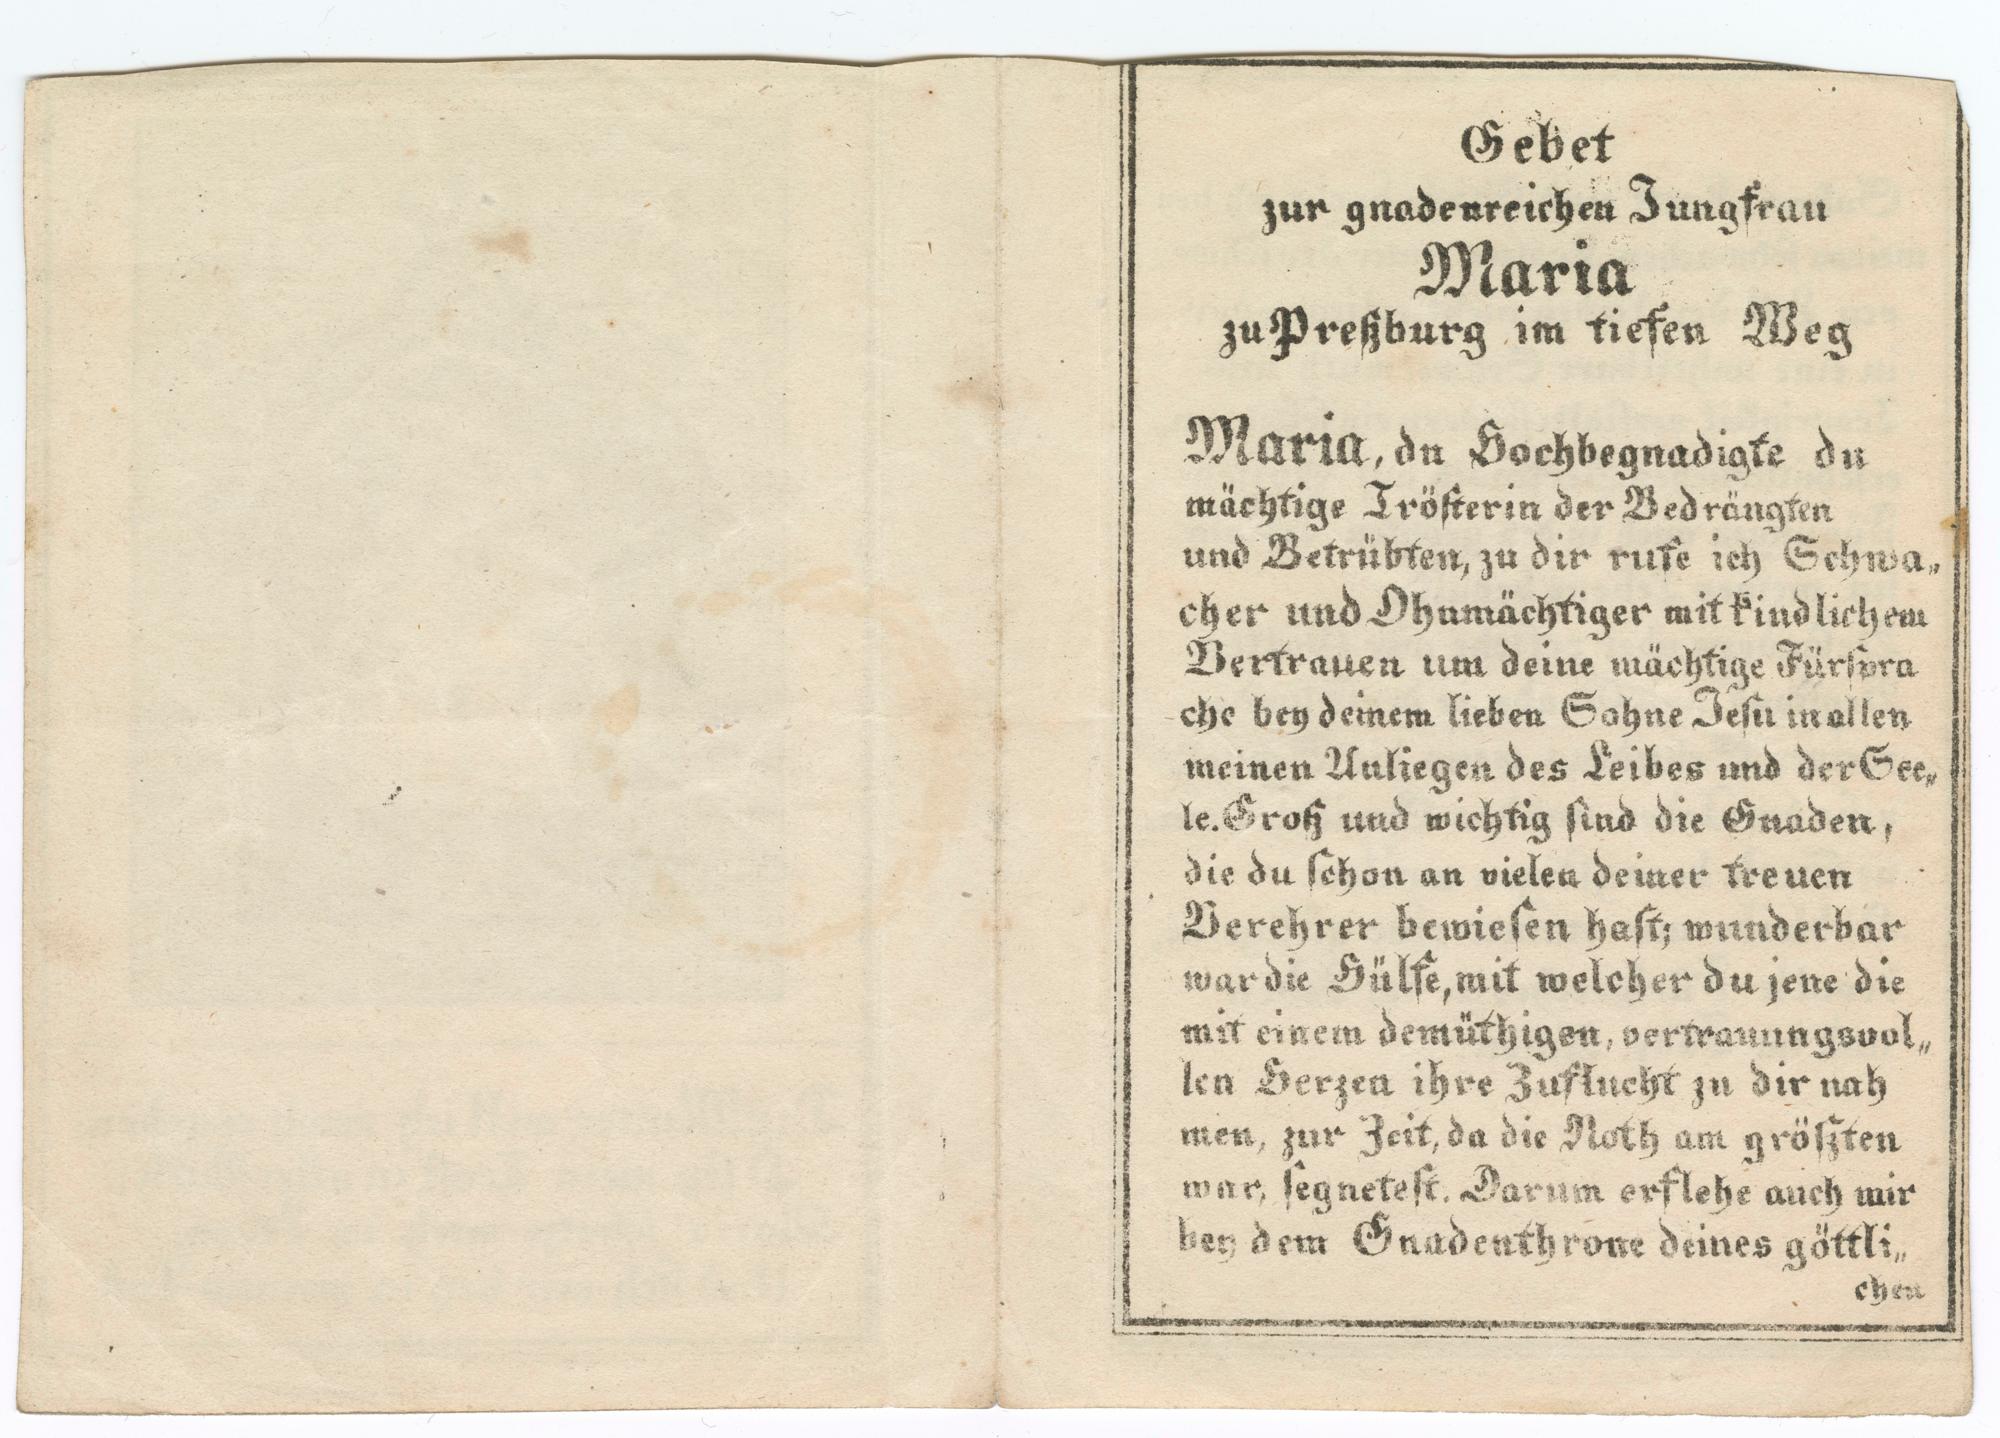 Gebet
zur gnadenreichen Jungfrau
Maria
zu Preßburg im tiefen Weg
Maria, du Hochbegnadigte du
mächtige Tröſterin der Bedrängten
und Betrübten, zu dir rufe ich Schwa„
cher und Ohnmächtiger mit kindlichem
Vertrauen um deine mächtige Fürſpra
che bey deinem lieben Sohne Jeſu in allen
meinen Anliegen des Leibes und der See„
le. Groß und wichtig ſind die Gnaden,
die du ſchon an vielen deiner treuen
Verehrer bewieſen haſt; wunderbar
war die Hülfe, mit welcher du jene die
mit einem demüthigen, vertrauungsvol„
len Herzen ihre Zuflucht zu dir nah
men, zur Zeit, da die Noth am größten
war, ſegneteſt. Darum erflehe auch mir
bey dem Gnadenthrone deines göttli„
chen